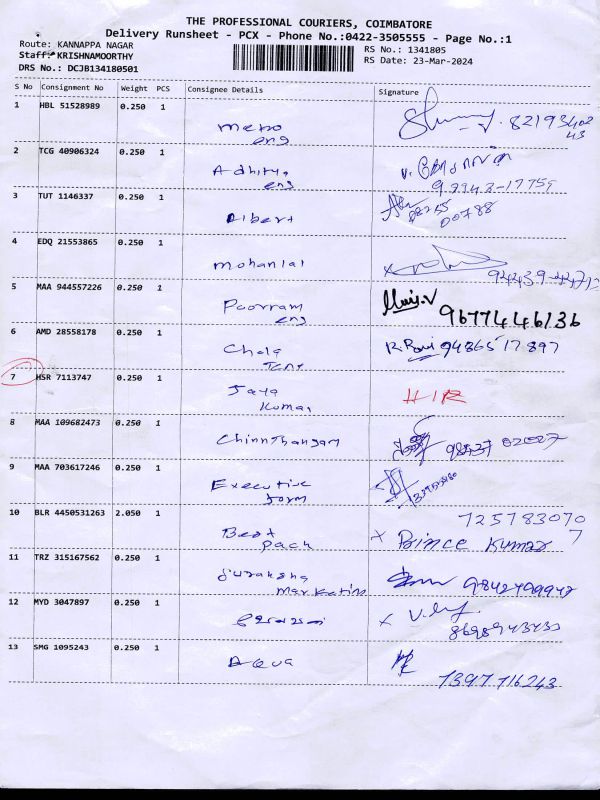 THE PROFESSIONAL COURIERS, COIMBATORE
Delivery Runsheet - PCX - Phone No.:0422-3505555 - Page No.:1
Route: KANNAPPA NAGAR
Staff: KRISHNAMOORTHY
DRS No.: DCJB134180501
RS No.: 1341805
RS Date: 23-Mar-2024
S No Consignment No Weight PCS Consignee Details Signature
1 HBL 51528989 0.250 1
Meno
eng
2 TCG 40906324 0.250 1
Adhitya
eng
3 TUT 1146337 0.250 1
Albert
00788
4 EDQ 21553865 0.250 1
Mohanlal
5 MAA 944557226 0.250 1
Poorram
eng
9677446136
6 AMD 28558178 0.250 1
Chola
R. Ravi 94865 17897
7 HSR 7113747 0.250 1
Jaya
Kumar
8 MAA 109682473 0.250 1
Chinnthangam
9 MAA 703617246 0.250 1
Executive
form
10 BLR 4450531263 2.050 1
Best
pack
725783070
7
x Prince Kumar
11 TRZ 315167562 0.250 1
Suraksha
Marketing
12 MYD 3047897 0.250 1
13 SMG 1095243 0.250 1
Aqua
7397716243